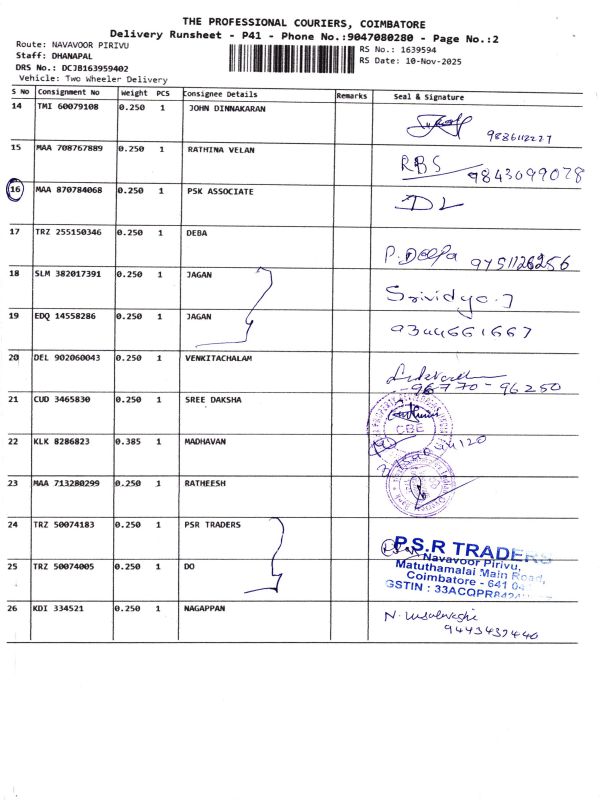 THE PROFESSIONAL COURIERS, COIMBATORE
Delivery Runsheet - P41 - Phone No.:9047080280 - Page No.:2
Route: NAVAVOOR PIRIVU
Staff: DHANAPAL
DRS No.: DCJB163959402
Vehicle: Two Wheeler Delivery
RS No.: 1639594
RS Date: 10-Nov-2025
S No Consignment No Weight PCS Consignee Details Remarks Seal & Signature
14 TMI 60079108 0.250 1 JOHN DINNAKARAN 9886112227
15 MAA 708767889 0.250 1 RATHINA VELAN RBS 9843099078
16 MAA 870784068 0.250 1 PSK ASSOCIATE DL
17 TRZ 255150346 0.250 1 DEBA P. Deepa 9751126256
18 SLM 382017391 0.250 1 JAGAN Srividya.J
19 EDQ 14558286 0.250 1 JAGAN 9344661667
20 DEL 902060043 0.250 1 VENKITACHALAM
96770-96250
21 CUD 3465830 0.250 1 SREE DAKSHA
CBE
22 KLK 8286823 0.385 1 MADHAVAN
23 MAA 713280299 0.250 1 RATHEESH
24 TRZ 50074183 0.250 1 PSR TRADERS P.S.R TRADERS
Navavoor Pirivu,
25 TRZ 50074005 0.250 1 DO Matuthamalai Main Road,
Coimbatore - 641
GSTIN : 33ACQPR8424
26 KDI 334521 0.250 1 NAGAPPAN
9443437440